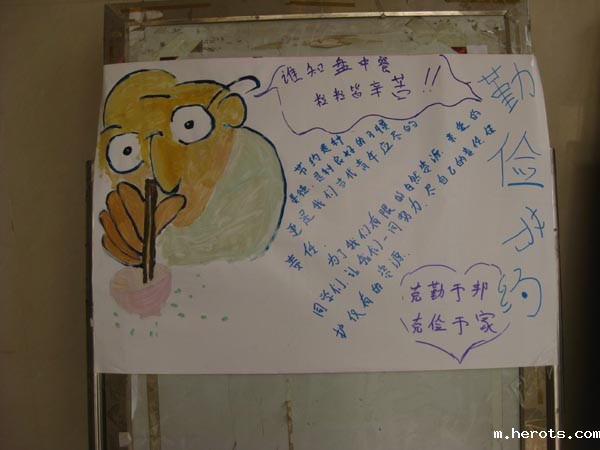 谁知盘中餐
粒粒皆辛苦!!
勤俭节约
节约是种
美德,是种良好的习惯
更是我们当代青年应尽的
责任.
为了我们有限的自然资源.亲爱的
同学们,让我们一同努力.尽自己的责任保
护仅有的资源.
克勤于邦
克俭于家
m.herots.com